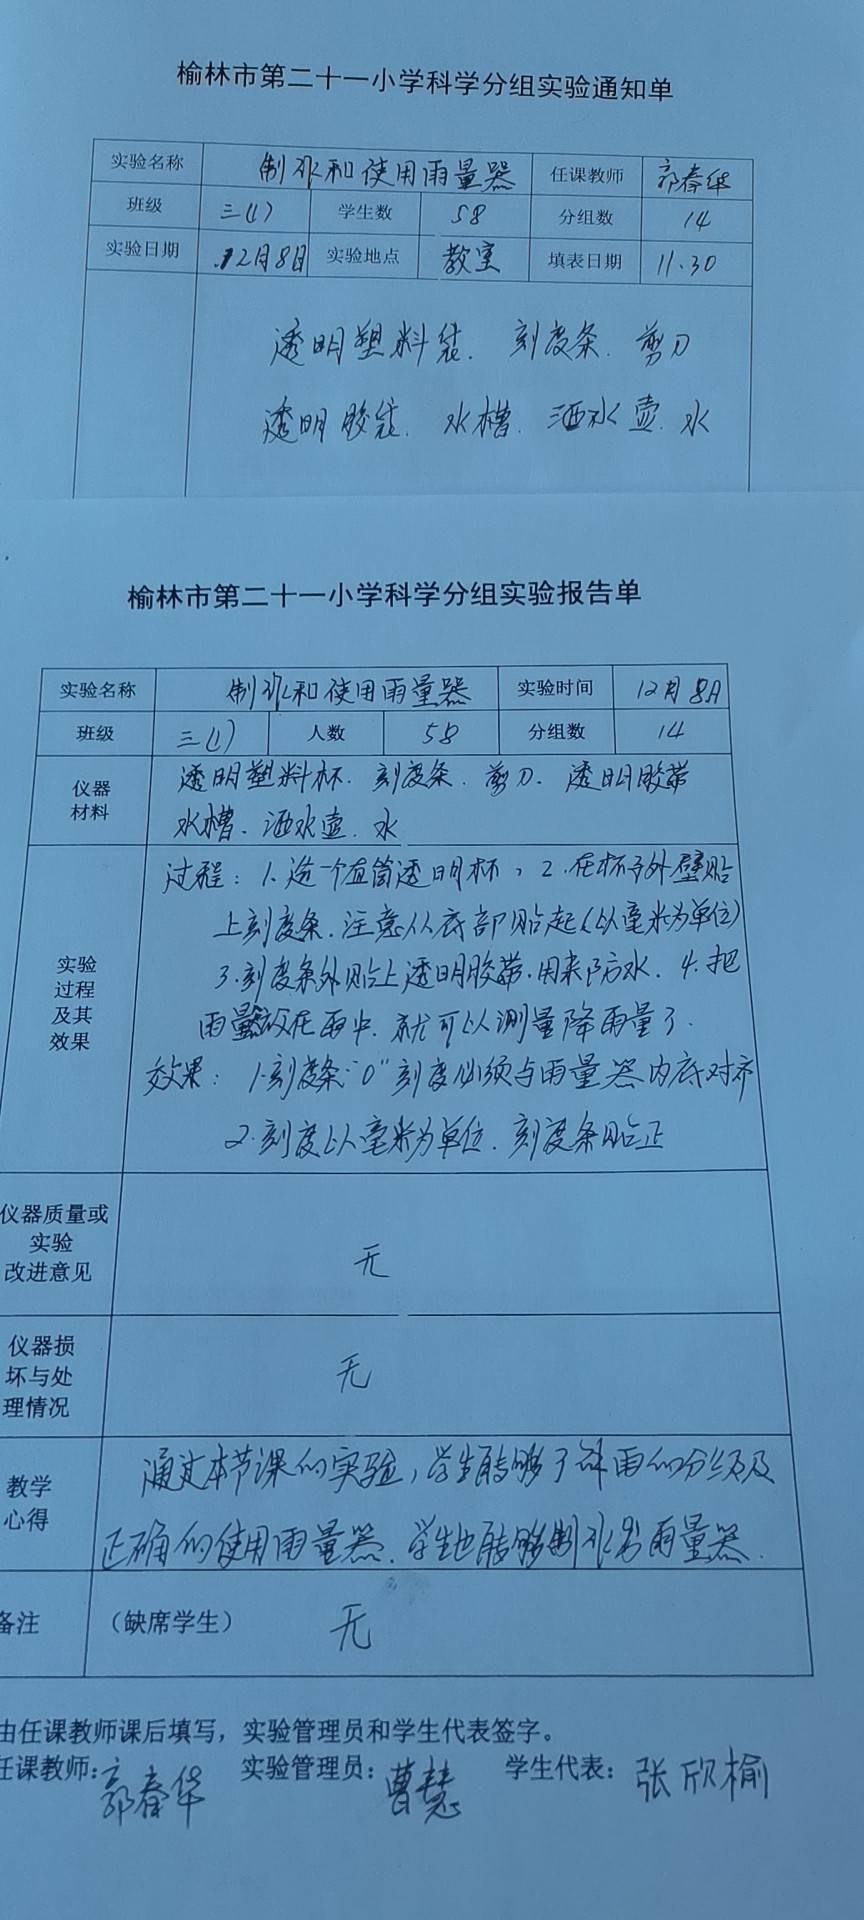 榆林市第二十一小学科学分组实验通知单
实验名称 制作和使用雨量器 任课教师 郭春华
班级 三(1) 学生数 58 分组数 14
实验日期 12月8日 实验地点 教室 填表日期 11.30
透明塑料袋. 刻度条. 剪刀
透明胶袋. 水槽. 洒水壶. 水
榆林市第二十一小学科学分组实验报告单
实验名称 制作和使用雨量器 实验时间 12月8日
班级 三(1) 人数 58 分组数 14
仪器
材料
透明塑料杯. 刻度条. 剪刀. 透明胶带
水槽. 洒水壶. 水
实验
过程
及其
效果
过程: 1.选一个直筒透明杯, 2.在杯子外壁贴
上刻度条.注意从底部贴起(以毫米为单位)
3.刻度条外贴上透明胶带.用来防水. 4.把
雨量放在雨中.就可以测量降雨量了.
效果: 1.刻度条"0"刻度必须与雨量器内底对齐
2.刻度以毫米为单位.刻度条贴正
仪器质量或
实验
改进意见
无
仪器损
坏与处
理情况
无
教学
心得
通过本节课的实验,学生能够了解雨的分级及
正确的使用雨量器.学生也能够制作雨量器.
备注 (缺席学生) 无
由任课教师课后填写,实验管理员和学生代表签字。
任课教师:郭春华 实验管理员:曹慧 学生代表:张欣榆